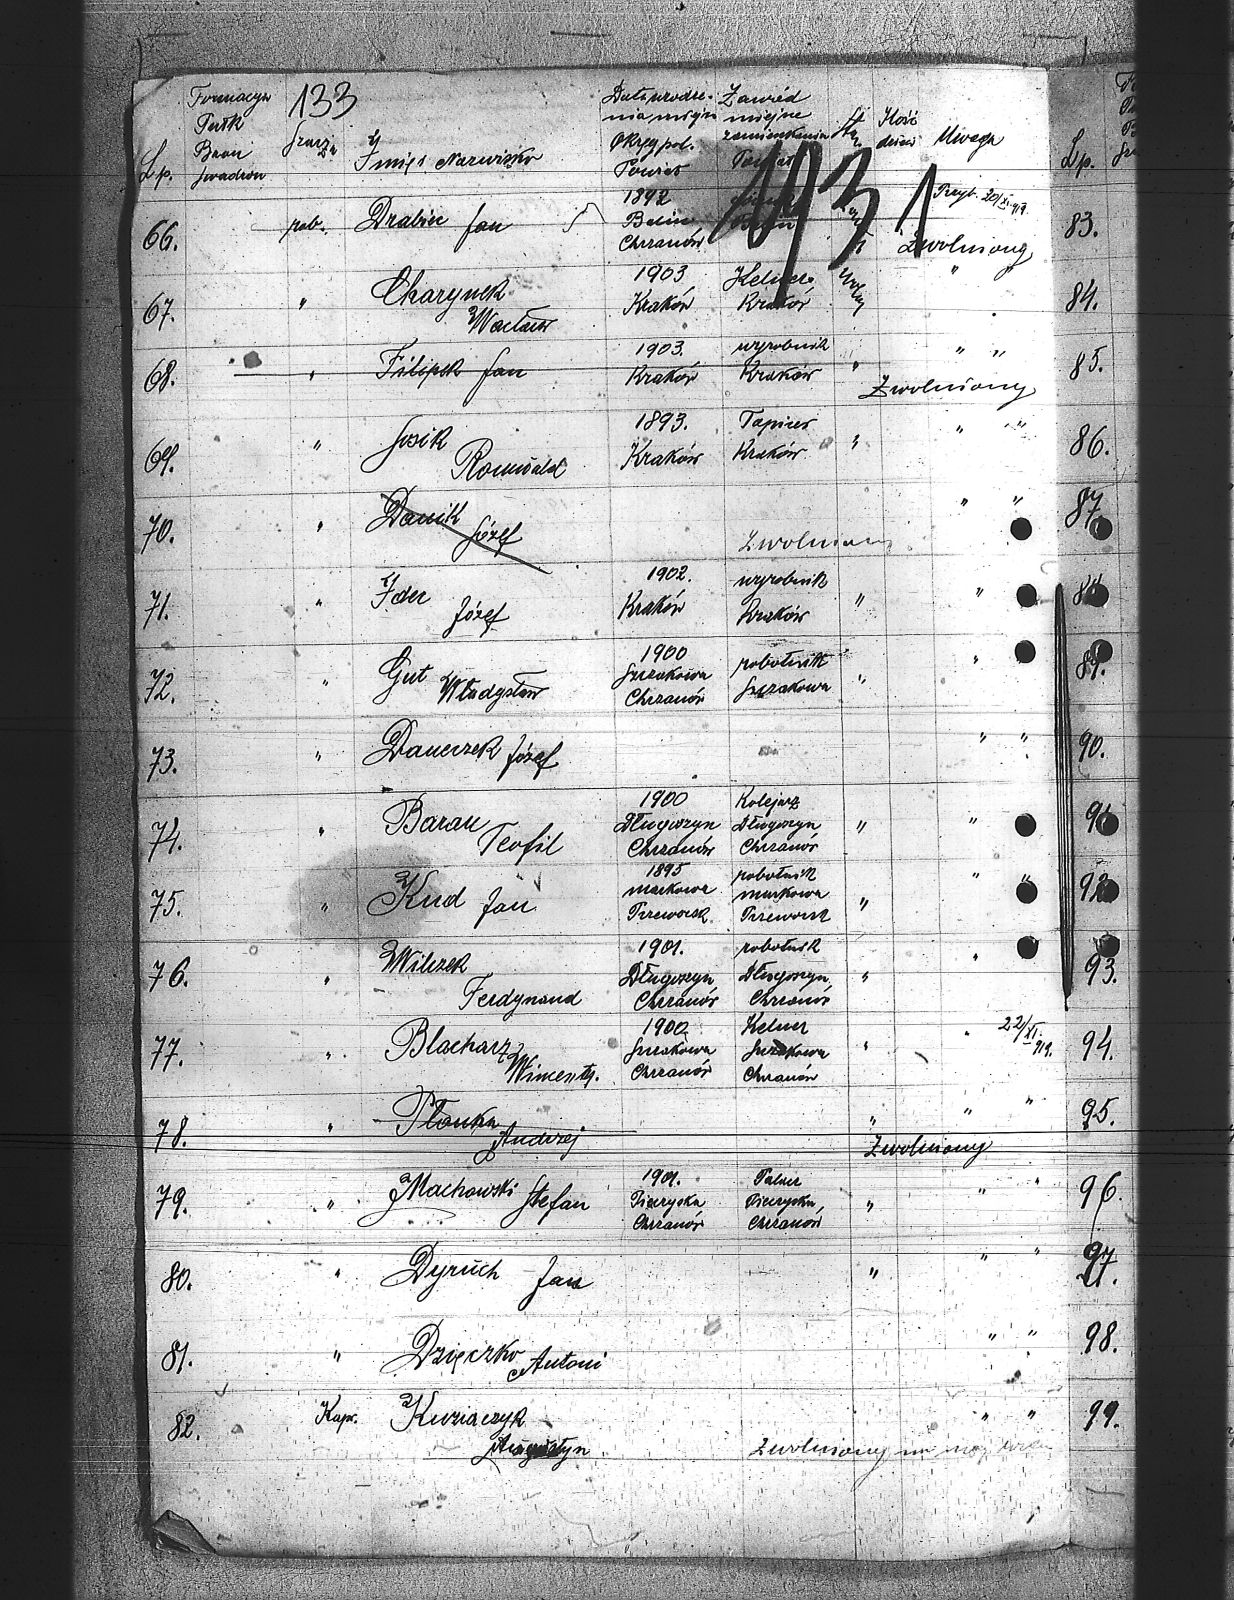 133
1931
Lp.
Formacya
Pułk
Baon
Szwadron
Imię i Nazwisko
Data urodze-
nia miejsce
Okręg pol.
Powiat
Zawód
miejsce
zamieszkania
Powiat
Ilość
dzieci
Uwaga
Lp.
66. rob. Drabic Jan
1892
Chrzanów
Przyb. 20/XI. 919.
Zwolniony
83.
67. " Charynek
Wacław
1903
Kraków
Kelner
Kraków
" "
84.
68. " Filipek Jan
1903.
Kraków
wyrobnik
Kraków
" " "
Zwolniony
85.
69. " Josik
Romuald
1893.
Kraków
Tapicer
Kraków
" " "
86.
70. " Danik
Józef
Zwolniony
" "
87.
71. " Ider
Józef
1902.
Kraków
wyrobnik
Kraków
" "
88.
72. " Gut
Władysław
1900
Szczakowa
Chrzanów
robotnik
Szczakowa
" "
89.
73. " Daneczek Józef
" "
90.
74. " Baran
Teofil
1900
Długoszyn
Chrzanów
Kolejarz
Długoszyn
Chrzanów
" "
91.
75. " Kud Jan
1895
Markowa
Przeworsk
robotnik
Markowa
Przeworsk
" " "
92.
76. " Wilczek
Ferdynand
1901.
Długoszyn
Chrzanów
robotnik
Długoszyn
Chrzanów
" "
93.
77. " Blacharz
Wincenty.
1900
Szczakowa
Chrzanów
Kelner
Szczakowa
Chrzanów
" "
22/XI. 919.
94.
78. " Płonka
Andrzej
" " "
Zwolniony
95.
79. " Machowski Stefan
1901.
Pieczyska
Chrzanów
Palacz
Pieczyska,
Chrzanów
" " "
96.
80. " Dyruch Jan
" " "
97.
81. " Dzięczko Antoni
" "
98.
82. Kapr. Kuraczyk
Augustyn
" "
Zwolniony
99.